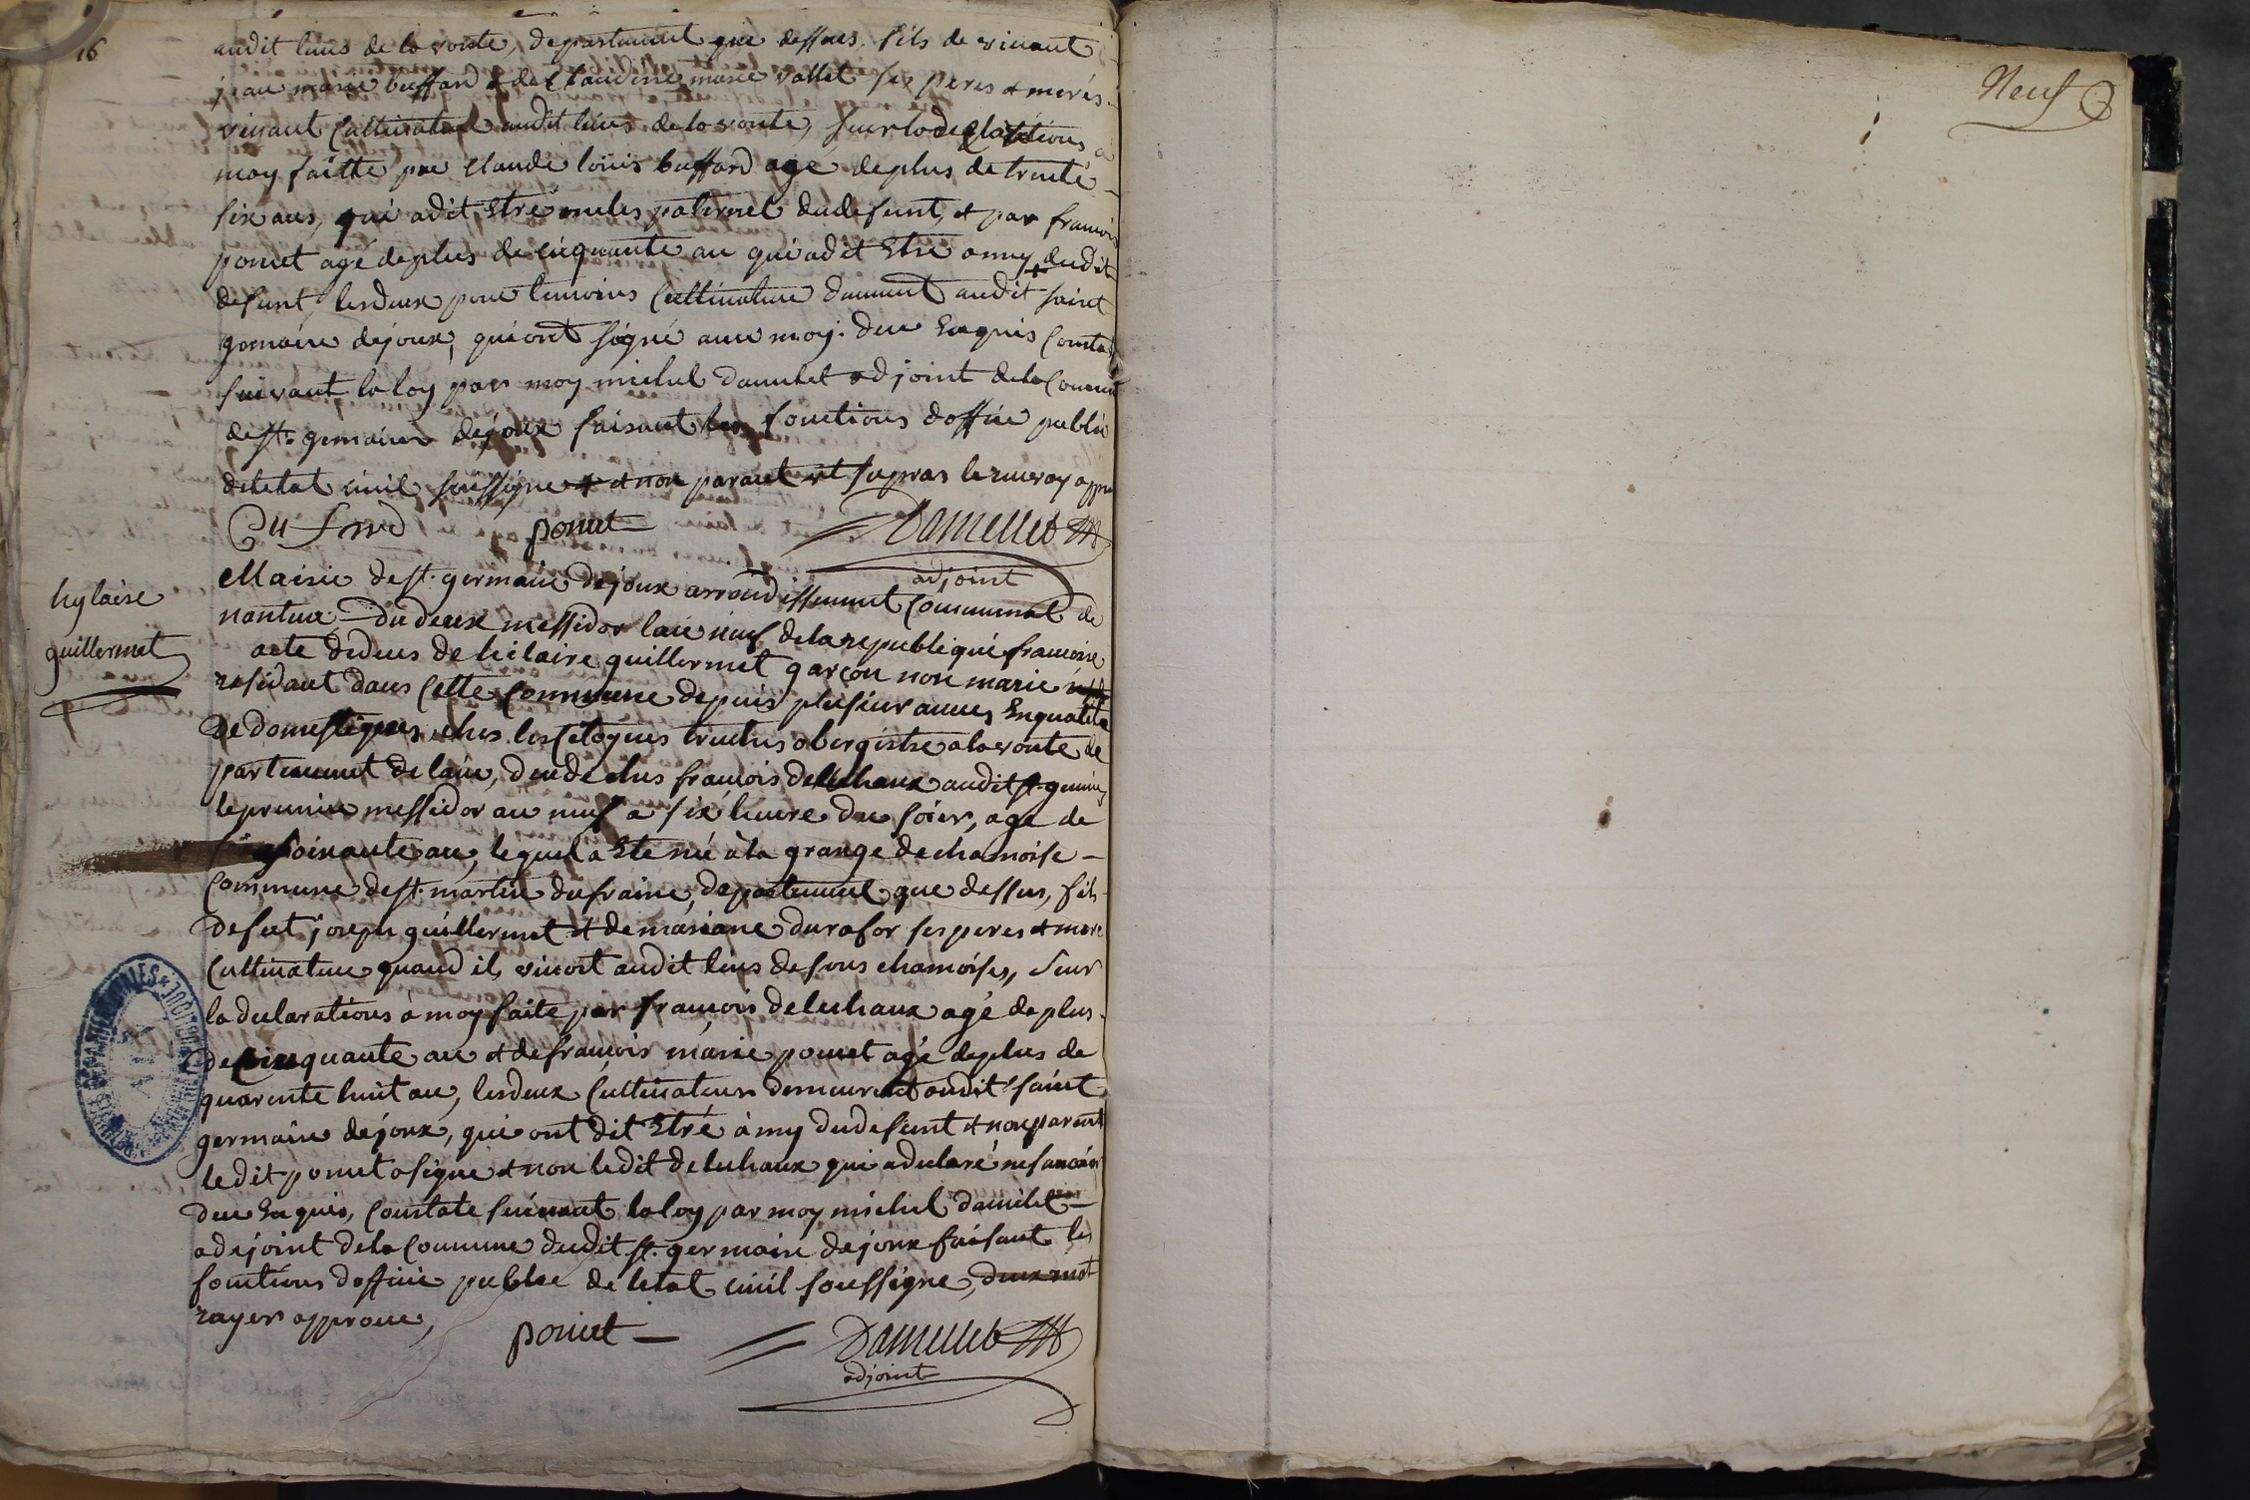 16
audit lieus de la voute, departement que dessus, fils de vivant
jean marie buffard & de Claudine marie vallet ses peres & merés
vivant Cultivateur audit lieus de la voute, sur la declarations à
moy faitte par claude loüis buffard agé deplus de trente
six ans, qui a dit Etré oncles paternel dudefunt, & par francois
ponset agé deplus de cinquante an qui a dit Etré amy dudit
defunt, lesdeux pour temoins Cultivateur demeurant audit saint
germaire dejoux, qui ont signé avec moy. deu Enquis Constaté
suivant la loy par moy michel adjoint dela Commune
de st. germaire dejoux faisant les fonctions dofficié publié
deletat civil soussigne & non parant
ponset
adjoint
hylaire
guillermet
Mairie de st. germain dejoux arrondissement Communal de
nantua du deux messidor lan neuf de la republique francoise
acte dedces de hilaire guillermet garçon non marie
residant dans Cette Commune depuis plusieur annees Enqualite
De domestiques ches les Citoyens obergistre a la voute de
partement de lain, decede ches francois deluchaux audit st. germain
le premier messidor an neuf a six heure du soier, age de
soixante an, lequel a Ete né à la grange de chamoise
Commune de st. martin dufraine, departement que dessus, fils
defut joseph guillermet & de mariane durafor ses peres & mere
Cultivateur quand ils vivoit audit lieus desous chamoises, sur
la declarations à moy faite par francois deluchaux agé deplus
De Cinquante an & de francois marie ponset agé deplus de
quarente huit an, lesdeux Cultivateurs demeurant audit saint
germain dejoux, qui ont dit Etré àmy dudefunt & non parent
ledit ponset a signe & non ledit deluchaux qui a declaré
deu Enquis, Constate suivant la loy par moy michel
adejoint dela Commune dudit st. germain dejoux faisant les
fonctions defficié de letat civil soussigne, deux mot
rayer approuve,
ponset
adjoint
Neuf